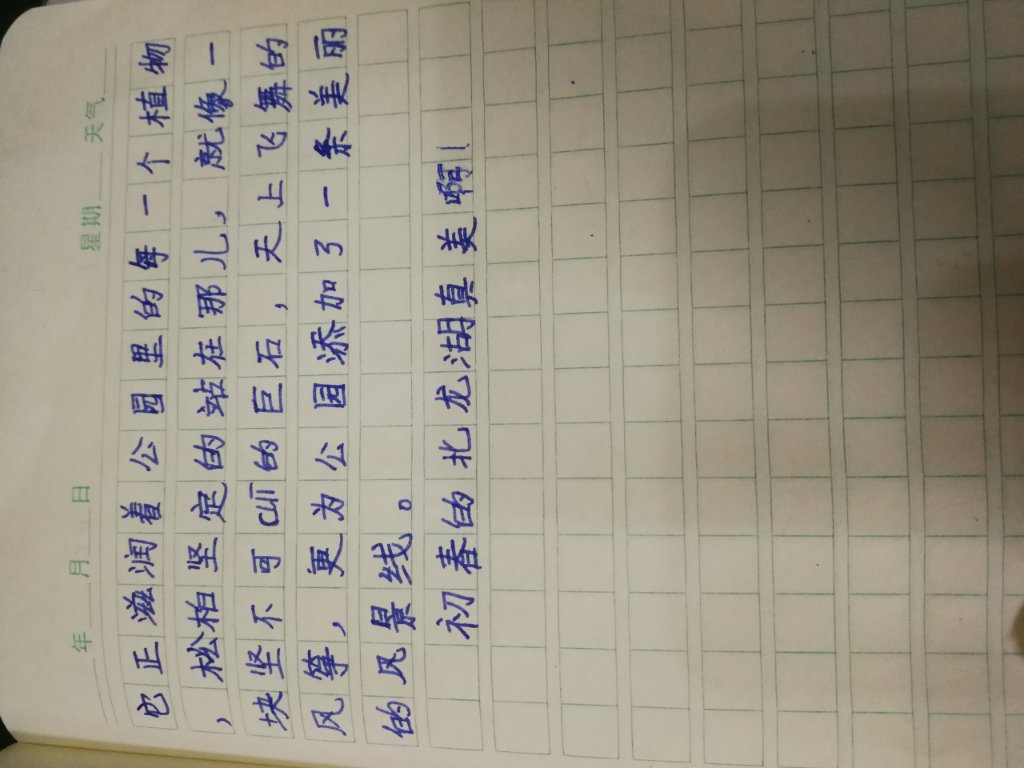 年 月 日 星期 天气
它正滋润着公园里的每一个植物
，松柏坚定的站在那儿，就像一
块坚不可cuī的巨石，天上飞舞的
风筝，更为公园添加了一条美丽
的风景线。
初春的北龙湖真美啊！